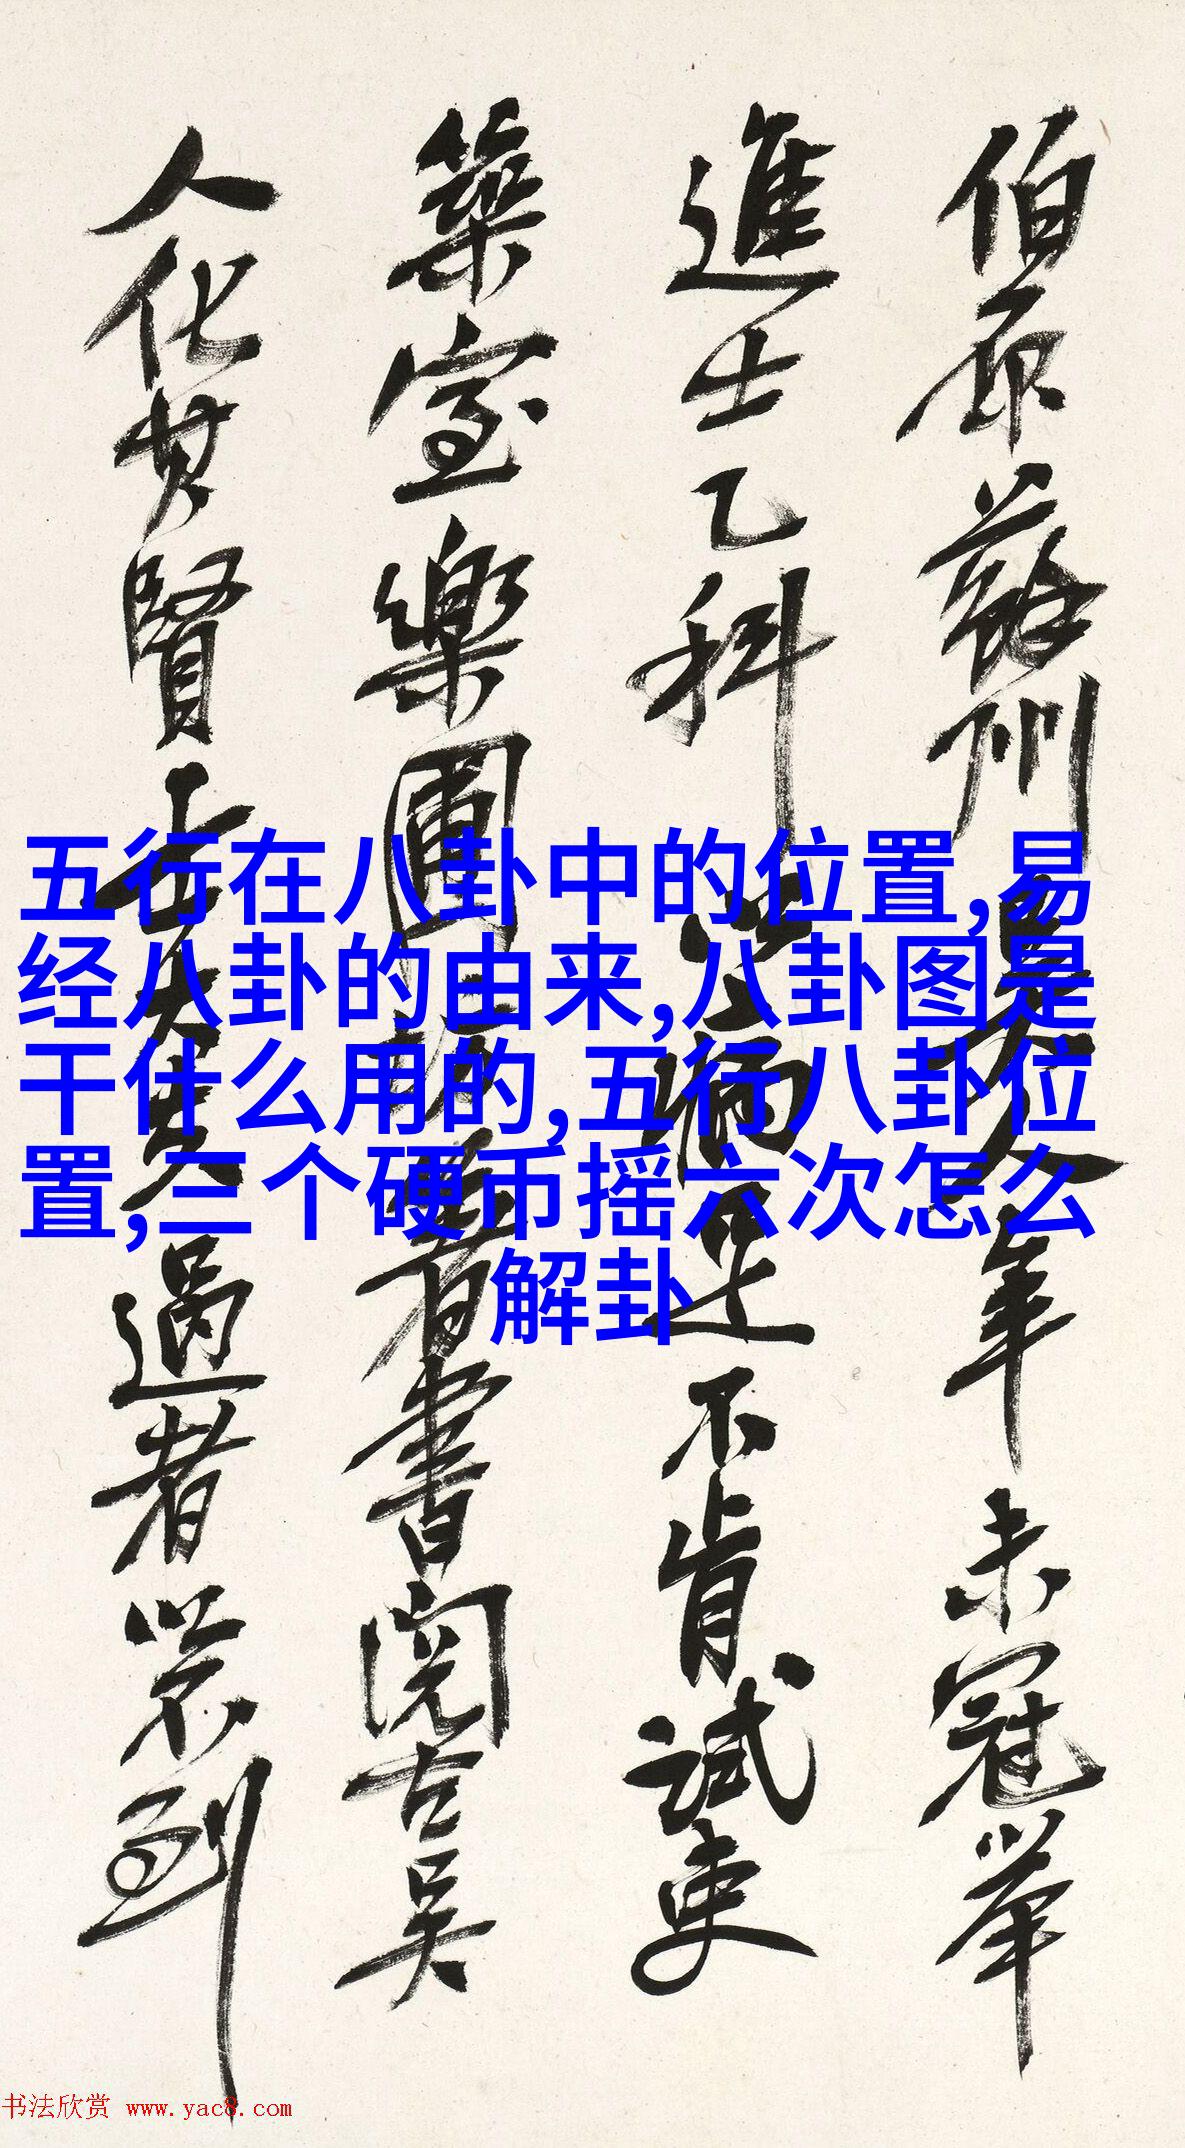 伯原蘇州吳人年未冠舉
進士乙科以病足不肯試吏
築室樂圃坊著書閱古吳
人化其賢士大夫過者以不到
五行在八卦中的位置,易
经八卦的由来,八卦图是
干什么用的,五行八卦位
置,三个硬币摇六次怎么
解卦
书法欣赏 www.yac8.com